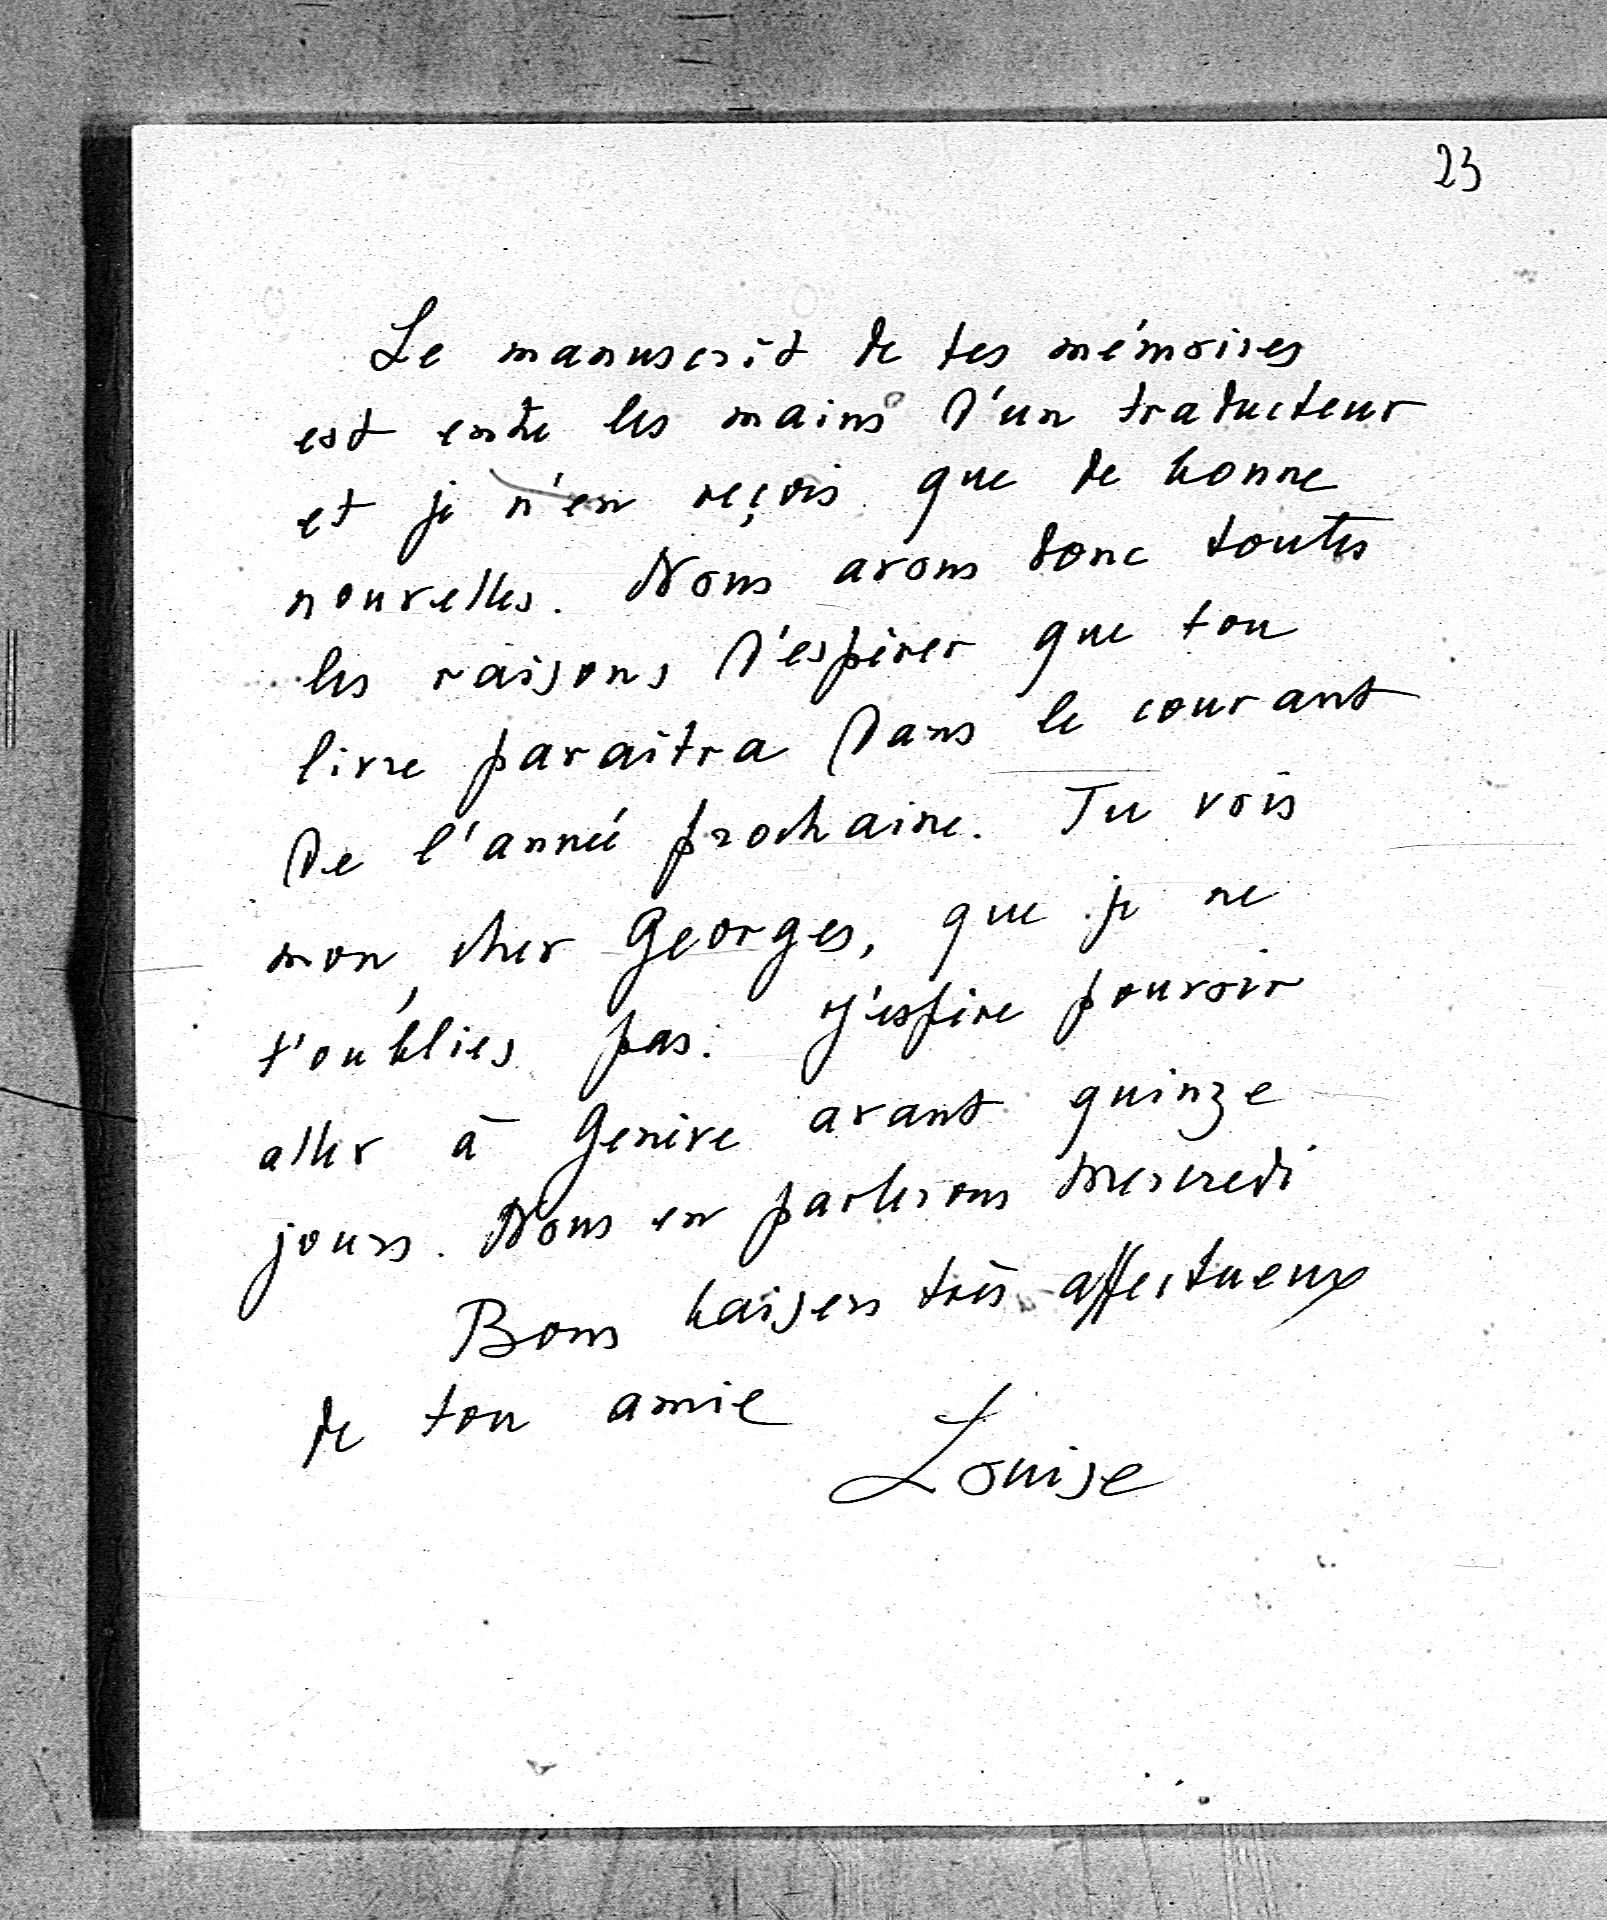 23
Le manuscrit de tes mémoires
est entre les mains d'un traducteur
et je n'en reçois que de bonne
nouvelles. Nous avons donc toutes
les raisons d'espérer que ton
livre paraitra dans le courant
de l'année prochaine. Tu vois
mon cher Georges, que je ne
t'oublies pas. J'espère pouvoir
aller à Genève avant quinze
jours. Nous en parlerons mercredi
Bons baisers très affectueux
de ton amie
Louise